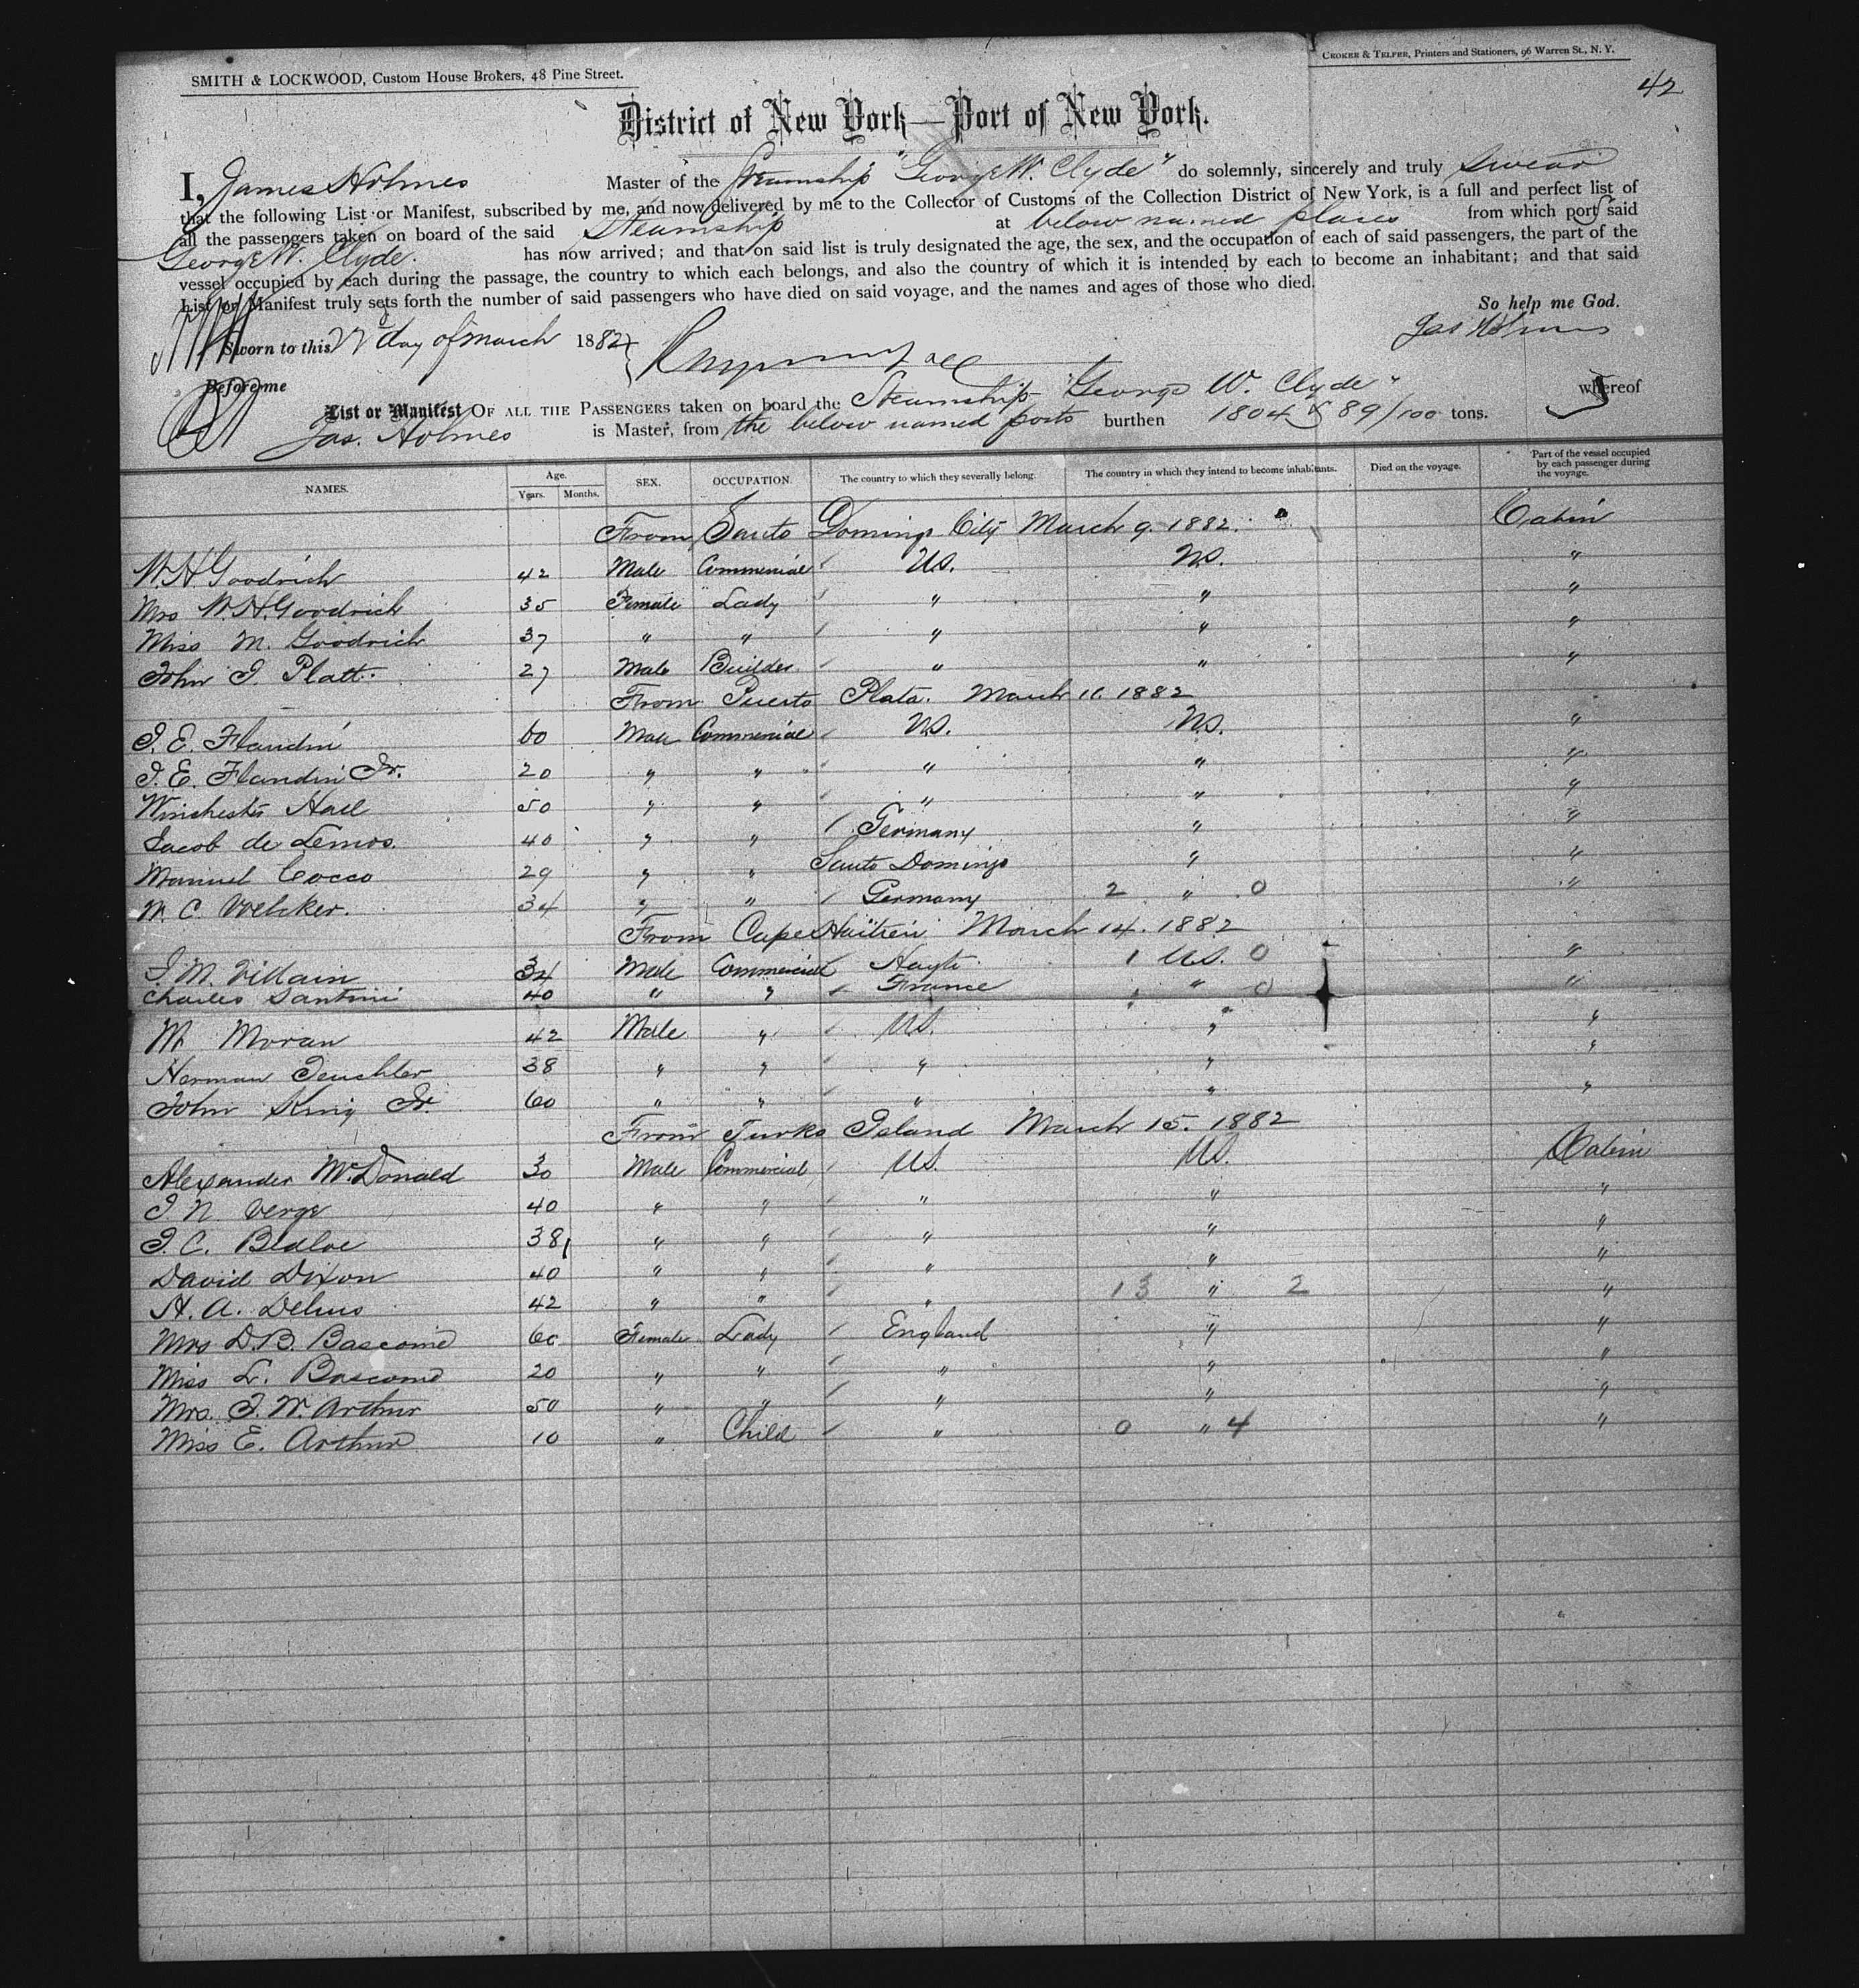 SMITH & LOCKWOOD, Custom House Brokers, 48 Pine Street.
CROKER & TELFER, Printers and Stationers, 96 Warren St., N. Y.
42
District of New York—Port of New York.
I, James Holmes Master of the Steamship "George W. Clyde" do solemnly, sincerely and truly swear
that the following List or Manifest, subscribed by me, and now delivered by me to the Collector of Customs of the Collection District of New York, is a full and perfect list of
all the passengers taken on board of the said Steamship at below named places from which port said
George W. Clyde. has now arrived; and that on said list is truly designated the age, the sex, and the occupation of each of said passengers, the part of the
vessel occupied by each during the passage, the country to which each belongs, and also the country of which it is intended by each to become an inhabitant; and that said
List or Manifest truly sets forth the number of said passengers who have died on said voyage, and the names and ages of those who died.
So help me God.
Sworn to this day of March 1882 Jas Holmes
Before me
List or Manifest OF ALL THE PASSENGERS taken on board the Steamship "George W. Clyde" whereof
Jas. Holmes is Master, from the below named ports burthen 1804 & 89/100 tons.
NAMES. Age. Years. Months. SEX. OCCUPATION. The country to which they severally belong. The country in which they intend to become inhabitants. Died on the voyage. Part of the vessel occupied by each passenger during the voyage.
From Santo Domingo City March 9. 1882. Cabin
W. H Goodrich 42 Male Commercial U.S. U.S. "
Mrs W. H. Goodrich 35 Female Lady " " "
Miss M. Goodrich 37 " " " " "
John I. Platt. 27 Male Builder " " "
From Puerto Plata. March 11. 1882
J. E. Flandin 60 Male Commercial U.S. U.S. "
J. E. Flandin Jr. 20 " " " " "
Winchester Hall 50 " " " " "
Jacob de Lemos. 40 " " Germany " "
Manuel Cocco 29 " " Santo Domingo " "
W. C. Voelcker. 34 " " Germany 2 " 0 "
From Cape Haïtien March 14. 1882
J. M. Villain 34 Male Commercial Hayti 1 U.S. 0 "
Charles Santini 40 " " France " 0 "
M. Moran 42 Male " U.S. " "
Herman 38 " " " " "
John King Jr. 60 " " " " "
From Turks Island March 15. 1882
Alexander McDonald 30 Male Commercial U.S. U.S. Cabin
J. N. Verge 40 " " " " "
J. C. Bedloe 38 " " " " "
David Dixon 40 " " " " "
H. A. Delius 42 " " " 13 " 2 "
Mrs D. B. Bascome 60 Female Lady England " "
Miss L. Bascome 20 " " " " "
Mrs. J. W. Arthur 50 " " " " "
Miss E. Arthur 10 " Child " 0 " 4 "